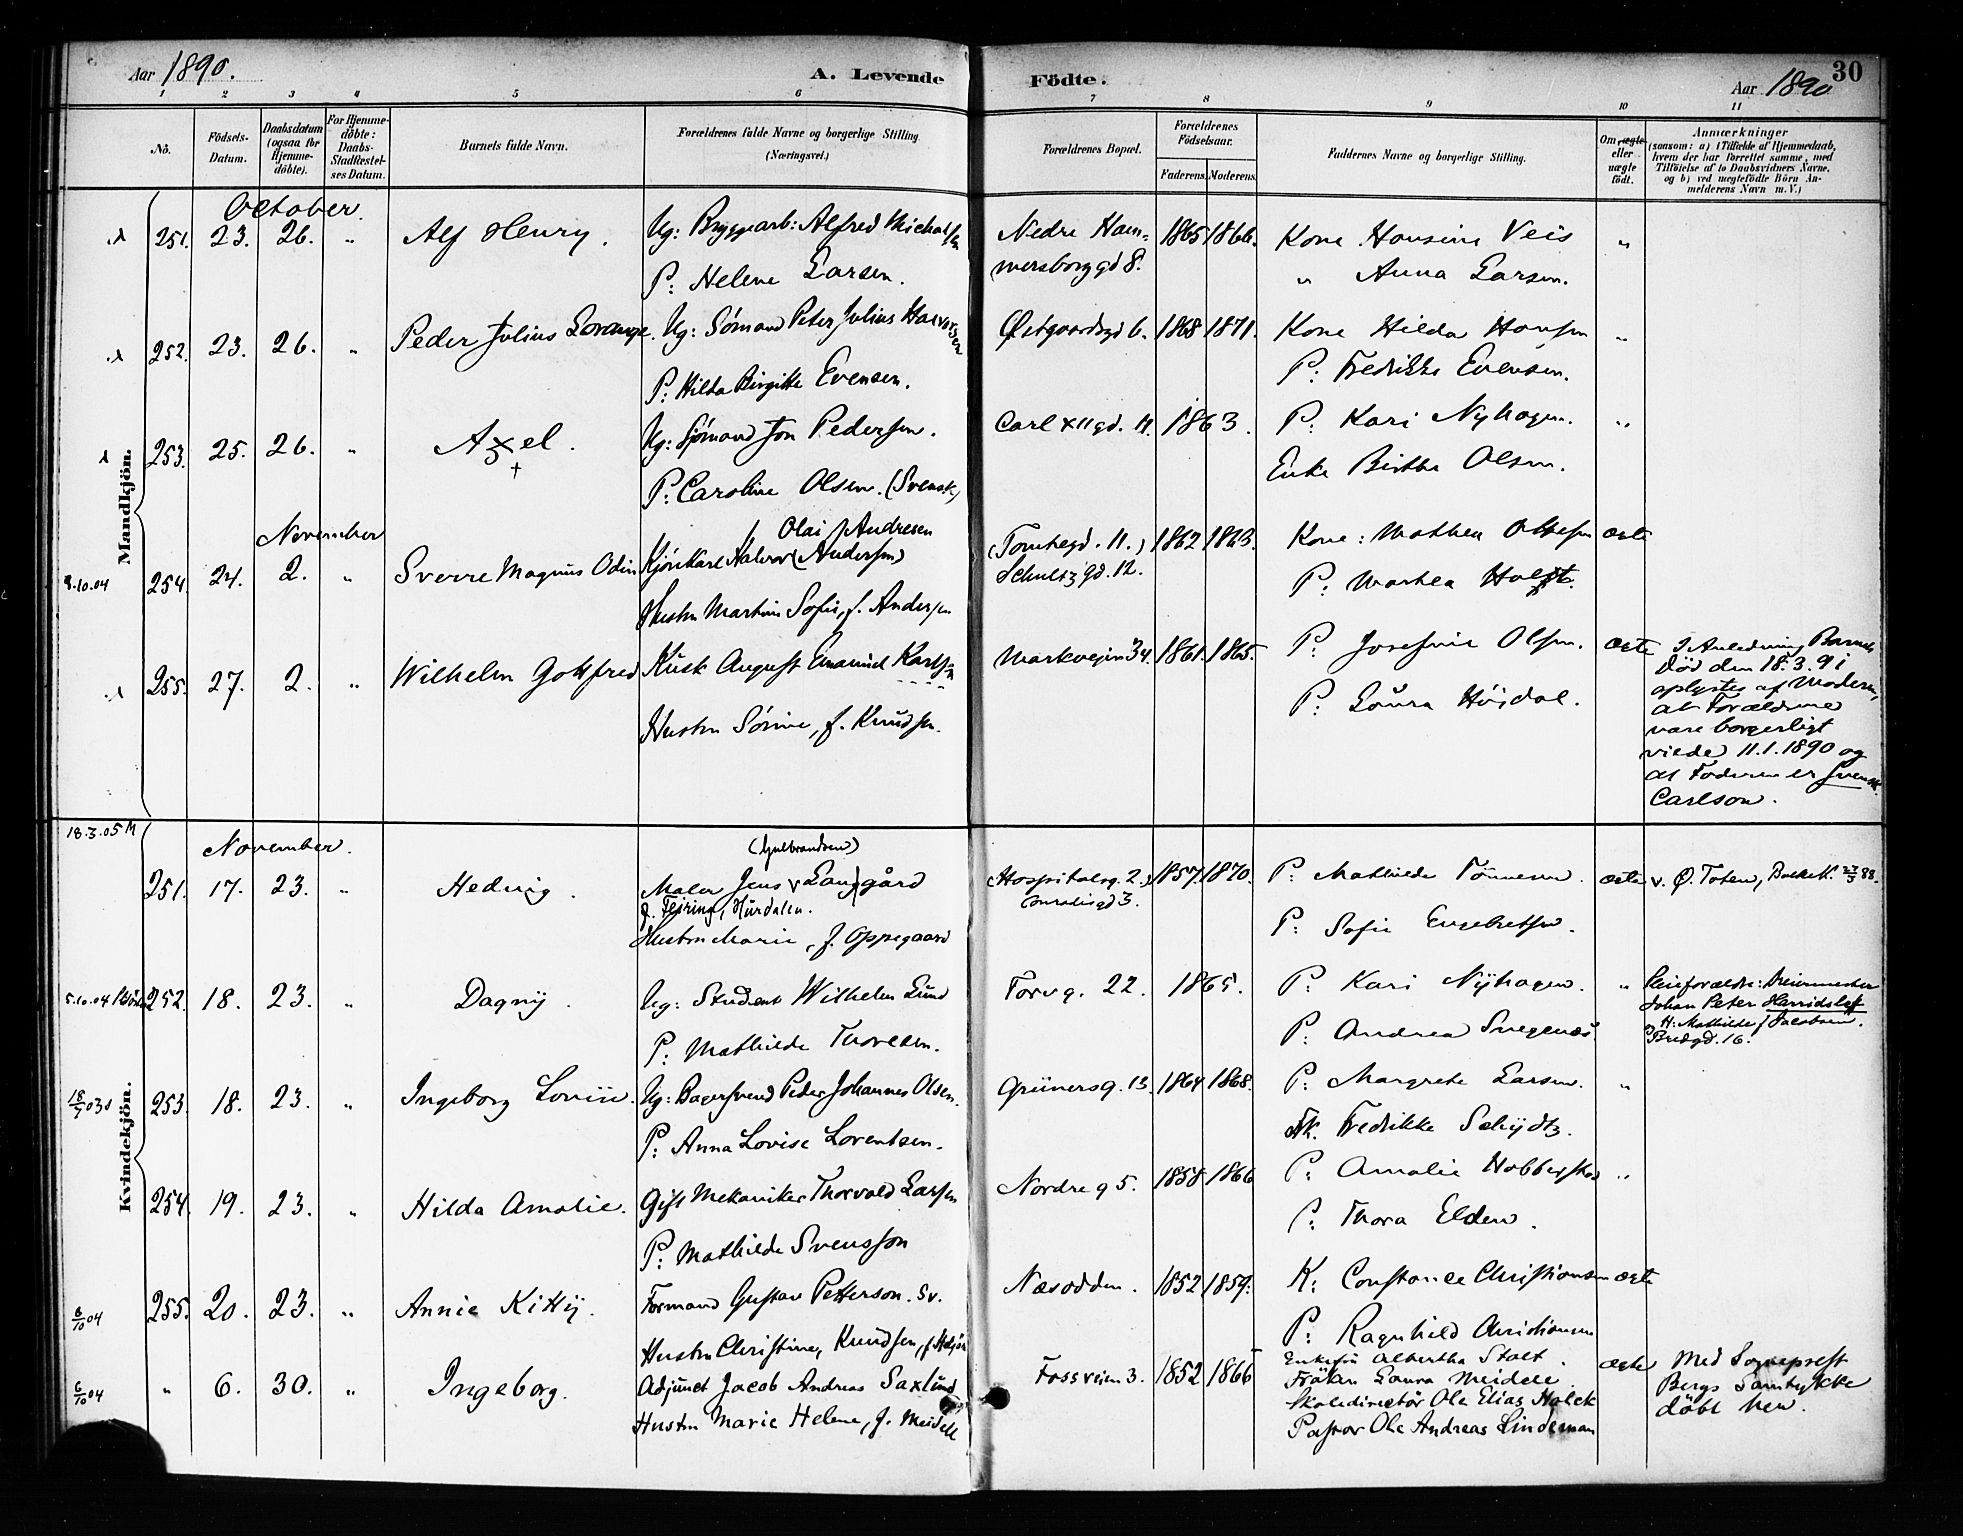 Aar 1890.
A. Levende
Födte.
Aar 1890
30
1 2 3 4 5 6 7 8 9 10 11
No.
Födsels-
Datum.
Daabsdatum
(ogsaa for
Hjemme-
döbte).
For Hjemme-
döbte:
Daabs-
Stadfæstel-
ses Datum.
Barnets fulde Navn.
Forældrenes fulde Navne og borgerlige Stilling.
(Næringsvei.)
Forældrenes Bopæl.
Forældrenes
Födselsaar.
Faderens. Moderens.
Faddernes Navne og borgerlige Stilling.
Om ægte
eller
uægte
født.
Anmærkninger
(saasom: a) i Tilfælde af Hjemmedaab,
hvem der har forrettet samme, med
Tilföielse af to Daabsvidners Navne.
og b) ved uegtefödte Börn An-
melderens Navn m. V.)
Mandkjön.
October.
251. 23. 26. " Alf Henry. Ug: Bryggearb: Alfred Michalsen Nedre Ham- 1865 1866. Kone Hansine Veis "
P: Helene Larsen. mersborggd 8. " Anna Larsen.
252. 23. 26. " Peder Julius Lorange. Ug: Sömand Peter Julius Halvorsen Østgaardsgd 6. 1868 1871. Kone Hilda Hansen "
P: Hilda Birgitte Evensen. P: Fredrikke Evensen.
253. 25. 26. " Axel. Ug: Sjömand Jon Pedersen. Carl XII gd. 11. 1863. P: Kari Nyhagen. "
P: Caroline Olsen. (Svensk) Enke Birthe Olsen.
November
Olai Andresen
8.10.04 254. 24. 2. " Sverre Magnus Odin Kjörekarl Halvor (Andersen) (Tomtegd. 11.) 1862 1863. Kone: Mathea Ottesen ægte
Schultzgd. 12.
Hustru Martine Sofie, f. Andersen P: Marthea Holst.
255. 27. 2. " Wilhelm Gottfred Kusk August Emanuel Karlsen Markveien 34. 1861. 1865. P: Josefine Olsen. ægte
Hustru Sörine, f. Knudsen. P: Laura Höidal.
I Anledning Barnets
Död den 18.3.91
oplystes af Moderen,
at Forældrene
vare borgerligt
viede 11.1.1890 og
at Faderen er Svensk.
Carlson.
Kvindekjön.
18.3.05 M
November.
(Gulbrandsen)
251. 17. 23. " Hedvig. Maler Jens Langgård (Hospitalsg. 2.) 1857. 1870. P: Mathilde Tönnesen. ægte v. Ø. Toten, 88.
f. Fejring, Hurdalen.
Hustru Marie, f. Oppegaard P: Sofie Engebretsen.
5.10.04 252. 18. 23. " Dagny. Ug: Student Wilhelm Lund Torvg. 22. 1865. P: Kari Nyhagen. "
P: Mathilde Thoresen. P: Andrea
Pleieforældre: Dreiermester
Johan Peter Harridslef
H: Mathilde f Jacobsen.
Bredgd. 16.
18/9 03 253. 18. 23. " Ingeborg Lovise. Ug: Bagersvend Peder Johannes Olsen. Grünersg. 13. 1864 1868. P: Margrete Larsen. "
P: Anna Lovise Lorentsen. Fk. Fredrikke Schydtz.
254. 19. 23. " Hilda Amalie. Gift Mekaniker Thorvald Larsen Nordre g 5. 1858 1866 P: Amalie "
P: Mathilde Svensson P: Thora Elden.
6/10 04 255. 20. 23. " Annie Kitty. Formand Gustav Petterson. Sv. Næsodden. 1852 1859. K: Constance Christiansen ægte
Hustru Christine, Knudsen, P: Ragnhild Christiansen
6/10 04 " 6. 30. " Ingeborg. Adjunct Jacob Andreas Saxlund Fossveien 3. 1852 1866 Enkefru Albertha Stalt. ægte
Hustru Marie Helene, f. Meidell
Fröken Laura Meidell
Skoledirektör Ole Elias Holck
Pastor Ole Andreas Lindeman
Med Sognepræst
Bergs Samtykke
döbt her.